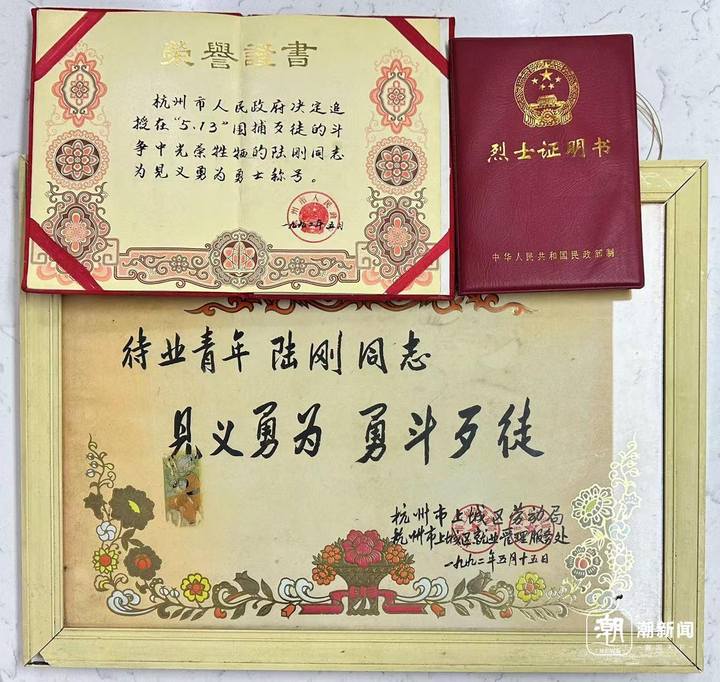 荣誉證書
杭州市人民政府决定追
授在"5.13"围捕歹徒的斗
争中光荣牲牺的陆刚同志
为见义勇为勇士称号。
一九九二年五月
烈士证明书
中华人民共和国民政部制
待业青年 陆刚同志
见义勇为 勇斗歹徒
杭州市上城区劳动局
杭州市上城区就业管理服务处
一九九二年五月十五日
潮新闻